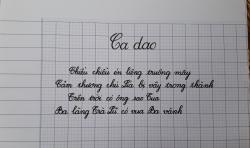 Ca dao
Chiều chiều én liệng truông mây
Cảm thương chú Lía bị vây trong thành
Trên trời có ông sao Tua
Ba làng Trà Lũ có vua Ba Vành